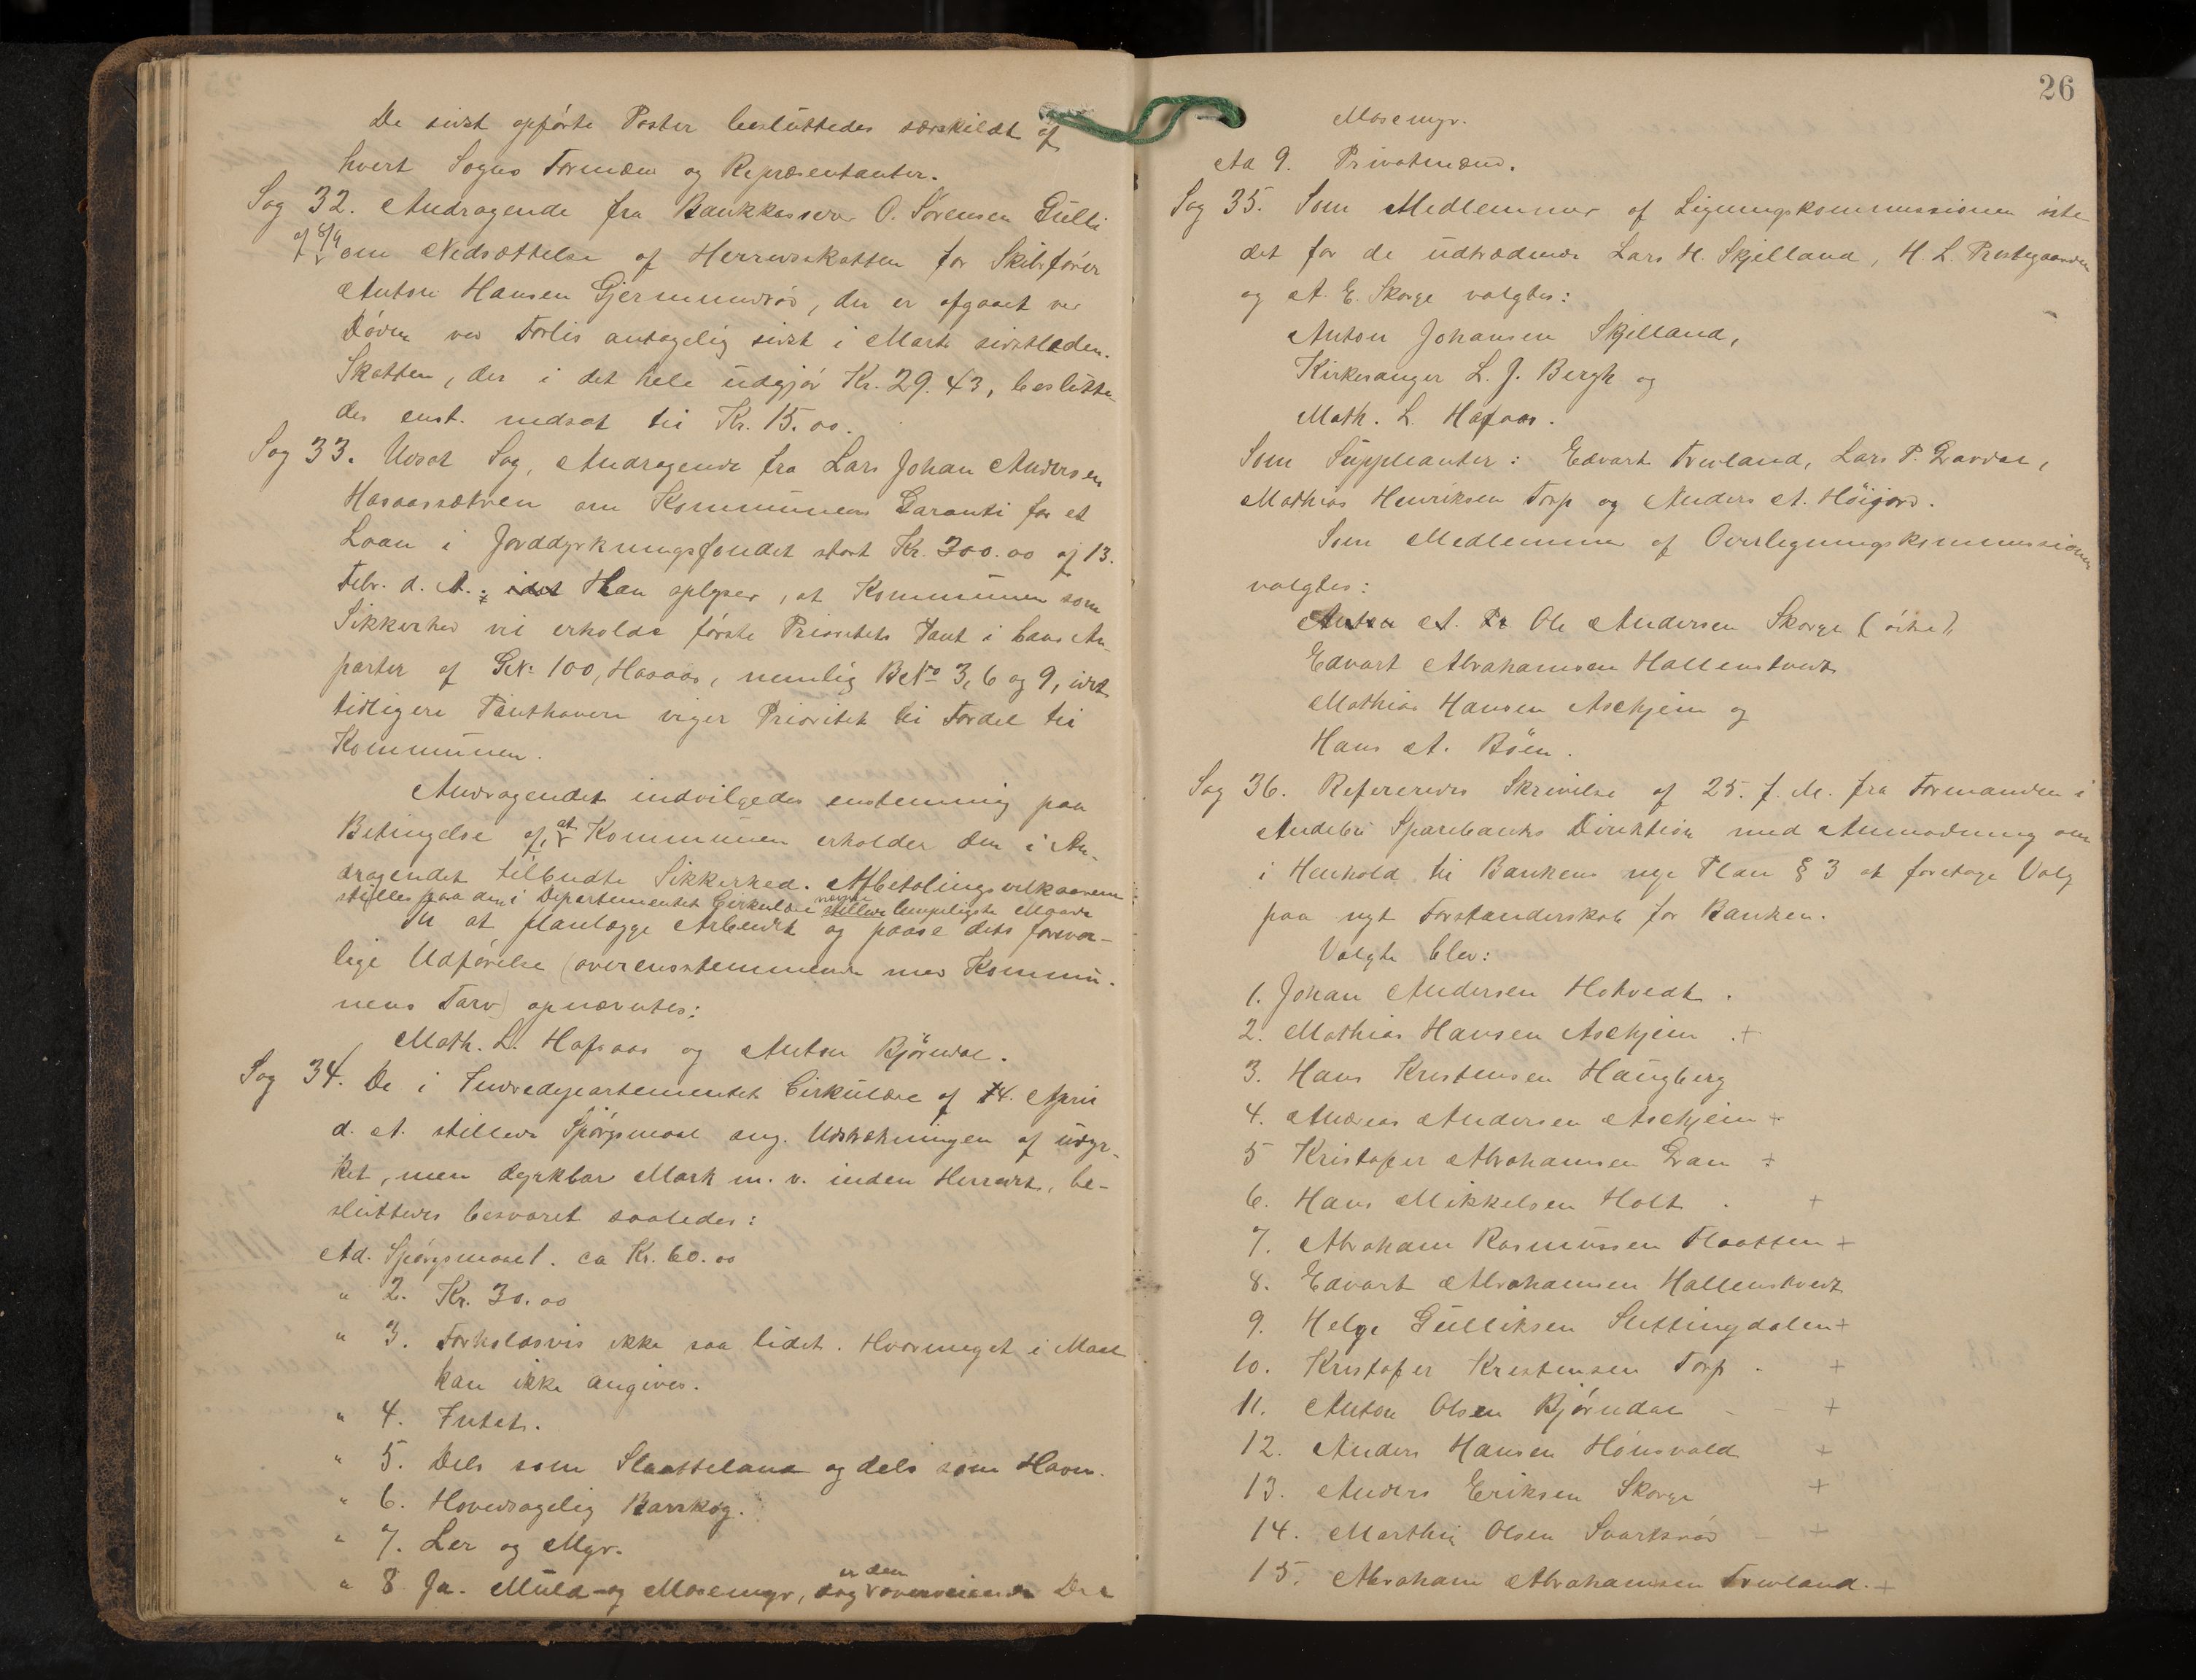 De sidst opførte Poster besluttedes særskildt af
hvert Sogns Formænd og Repræsentanter.
Sag 32. Andragende fra Bankkasserer O. Sørensen Gulli
af 8/4 om Nedsættelse af Herredsskatten for Skibsfører
Anton Hansen Gjermundrød, der er afgaaet ved
Døden ved Forlis antagelig sidst i Marts sidstleden.
Skatten, der i det hele udgjør Kr. 29.43, beslutte-
des enst. nedsat til Kr. 15.00.
Sag 33. Udsat Sag, Andragende fra Lars Johan Andersen
Hasaassætren om Kommunens Garanti for et
Laan i Jorddyrkningsfondet stort Kr. 300.00 af 13.
Febr. d. A. idet Han oplyser, at Kommunen som
Sikkerhed vil erholde første Prioritets Pant i hans An-
parter af GN: 100, Hasaas, nemlig BNo 3, 6 og 9, idet
tidligere Panthavere viger Prioritet til Fordel til
Kommunen.
Andragendet indvilgedes enstemmig paa
Betingelse af, at Kommunen erholder den i An-
dragendet tilbudte Sikkerhed. Afbetalingsvilkaarene
stilles paa den i Departementets Cirkulære nævnte stillede lempeligste Maade
Til at planlægge Arbeidet og paase dets forsvar-
lige Udførelse (overensstemmende med Kommu-
nens Tarv) opnævntes:
Math. L. Hafsaas og Anton Bjørndal.
Sag 34. De i Indredepartementets Cirkulære af 14. April
d. A. stillede Spørgsmaal ang. Udstrækningen af udyr-
ket, men dyrkbar Mark m. v. inden Herredet, be-
sluttedes besvaret saaledes:
Ad. Spørgsmaal 1. ca Kr. 60.00
" 2. Kr. 30.00
" 3. Forholdsvis ikke saa lidet. Hvormeget i Maal
kan ikke angives.
" 4. Intet.
" 5. Dels som Slaatteland og dels som Havn.
" 6. Hovedsagelig Barskog.
" 7. Ler og Myr.
" 8 Ja. Muld- og Mosemyr, dog er den overveiende Del
26
Mosemyr.
Ad 9. Privatmænd.
Sag 35. Som Medlemmer af Ligningskommissionen iste-
det for de udtrædende Lars H. Skjelland, H. L. Prestegaarden
og A. E. Skorge valgtes:
Anton Johansen Skjelland,
Kirkesanger L. J. Bergh og
Math. L. Hafsaas.
Som Suppleanter: Edvart Trevland, Lars P. Gravdal,
Mathias Henriksen Torp og Anders A. Høigjord.
Som Medlemmer af Overligningskommissionen
valgtes:
Anton A. Ole Andersen Skorge (østre),
Edvart Abrahamsen Hallenstvedt
Mathias Hansen Askjem og
Hans A. Bøen.
Sag 36. Refereredes Skrivelse af 25. f. M. fra Formanden i
Andebu Sparebanks Direktion med Anmodning om
i Henhold til Bankens nye Plan § 3 at foretage Valg
paa nyt Forstanderskab for Banken.
Valgte blev:
1. Johan Andersen Hotvedt.
2. Mathias Hansen Askjem. +
3. Hans Kristensen Haugberg
4. Andreas Andersen Askjem +
5 Kristofer Abrahamsen Gran +
6. Hans Mikkelsen Holt. +
7. Abraham Rasmussen Flaatten +
8. Edvart Abrahamsen Hallenstvedt
9. Helge Gulliksen Slettingdalen +
10. Kristofer Kristensen Torp. +
11. Anton Olsen Bjørndal - - +
12. Anders Hansen Hønsvald +
13. Anders Eriksen Skorge +
14. Marthin Olsen Svartsrød - +
15. Abraham Abrahamsen Trevland. +